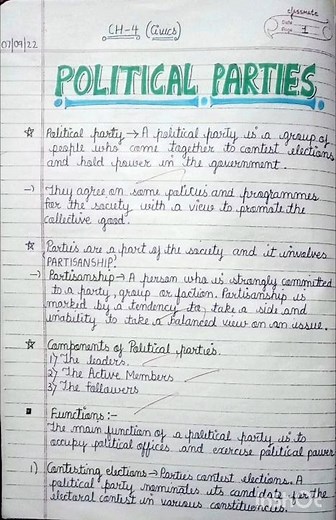 classmate
Date
Page 1
07/09/22
CH-4 (Civics)
POLITICAL PARTIES
☆ Political party → A political party is a group of
people who come together to contest elections
and hold power in the government.
→ They agree on some policies and programmes
for the society with a view to promote the
collective good.
☆ Parties are a part of the society and it involves
'PARTISANSHIP'
→ Partisanship → A person who is strongly committed
to a party, group or faction. Partisanship is
marked by a tendency to take a side and
inability to take a balanced view on an issue.
☆ Components of Political parties.
1) The leaders.
2) The Active Members
3) The Followers
▪ Functions :-
The main function of a political party is to
occupy political offices and exercise political power
1) Contesting elections → Parties contest elections. A
political party nominates its candidate for the
electoral contest in various constituencies.